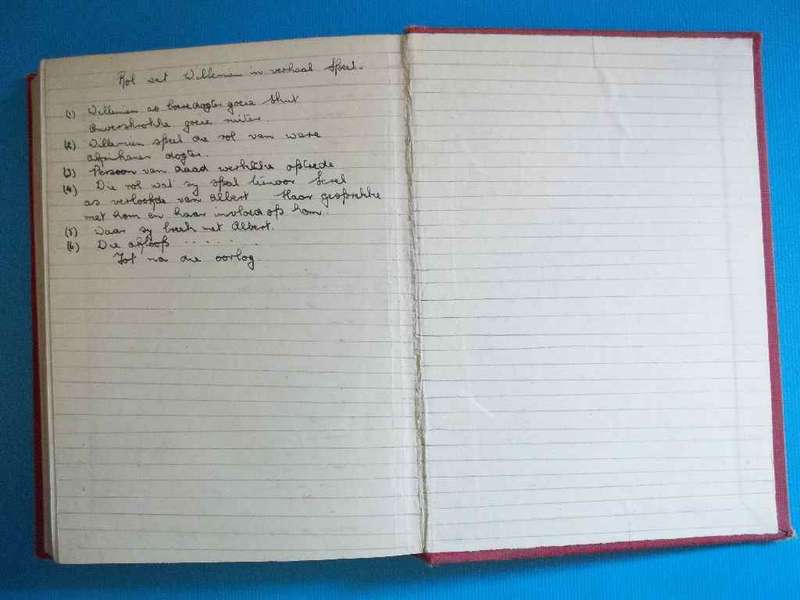 Rol wat Willemien in verhaal speel.
(1) Willemien as boeredogter goeie skut
onverskrokke goeie ruiter.
(2) Willemien speel die rol van ware
afrikaner dogter.
(3) Persoon van daad werklike optrede
(4) Die rol wat sy speel teenoor
as verloofde van Albert Haar gesprekke
met hom en haar invloed op hom.
(5) Waar sy breek met Albert.
(6) Die afloop . . . . . . . .
Tot na die oorlog